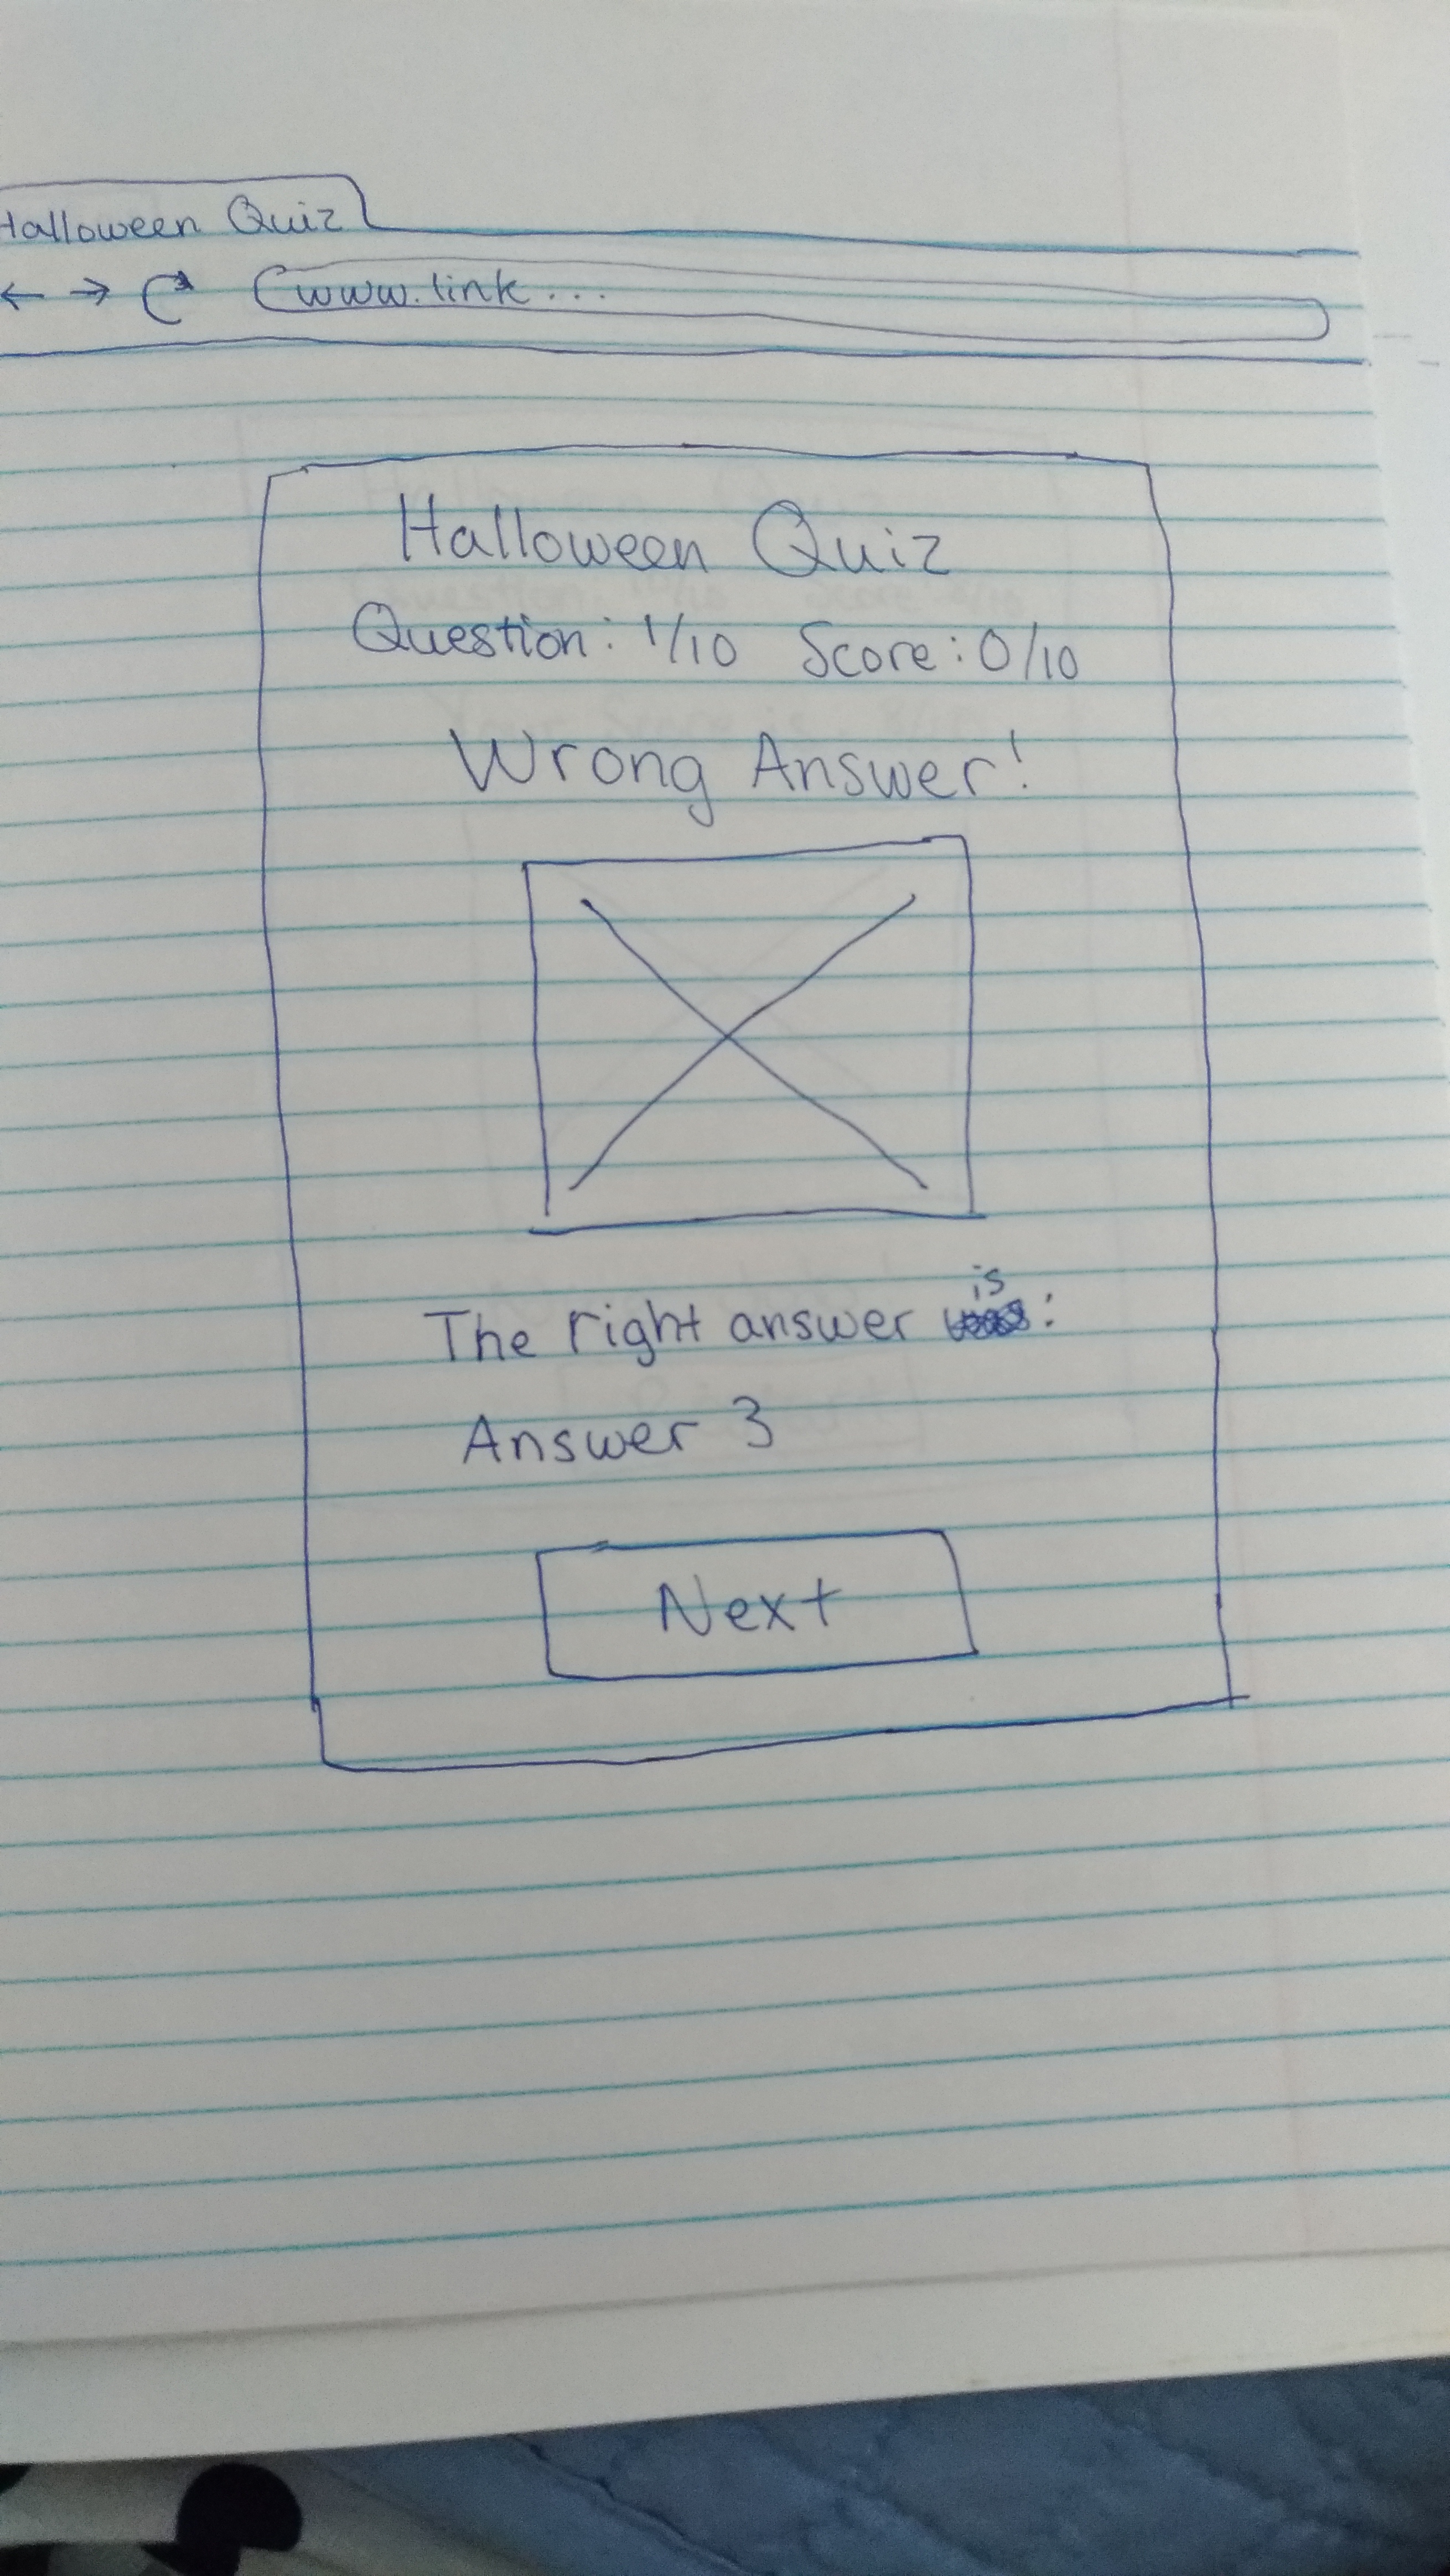 Halloween Quiz
← → www.link...
Halloween Quiz
Question: 1/10 Score: 0/10
Wrong Answer!
The right answer is:
Answer 3
Next